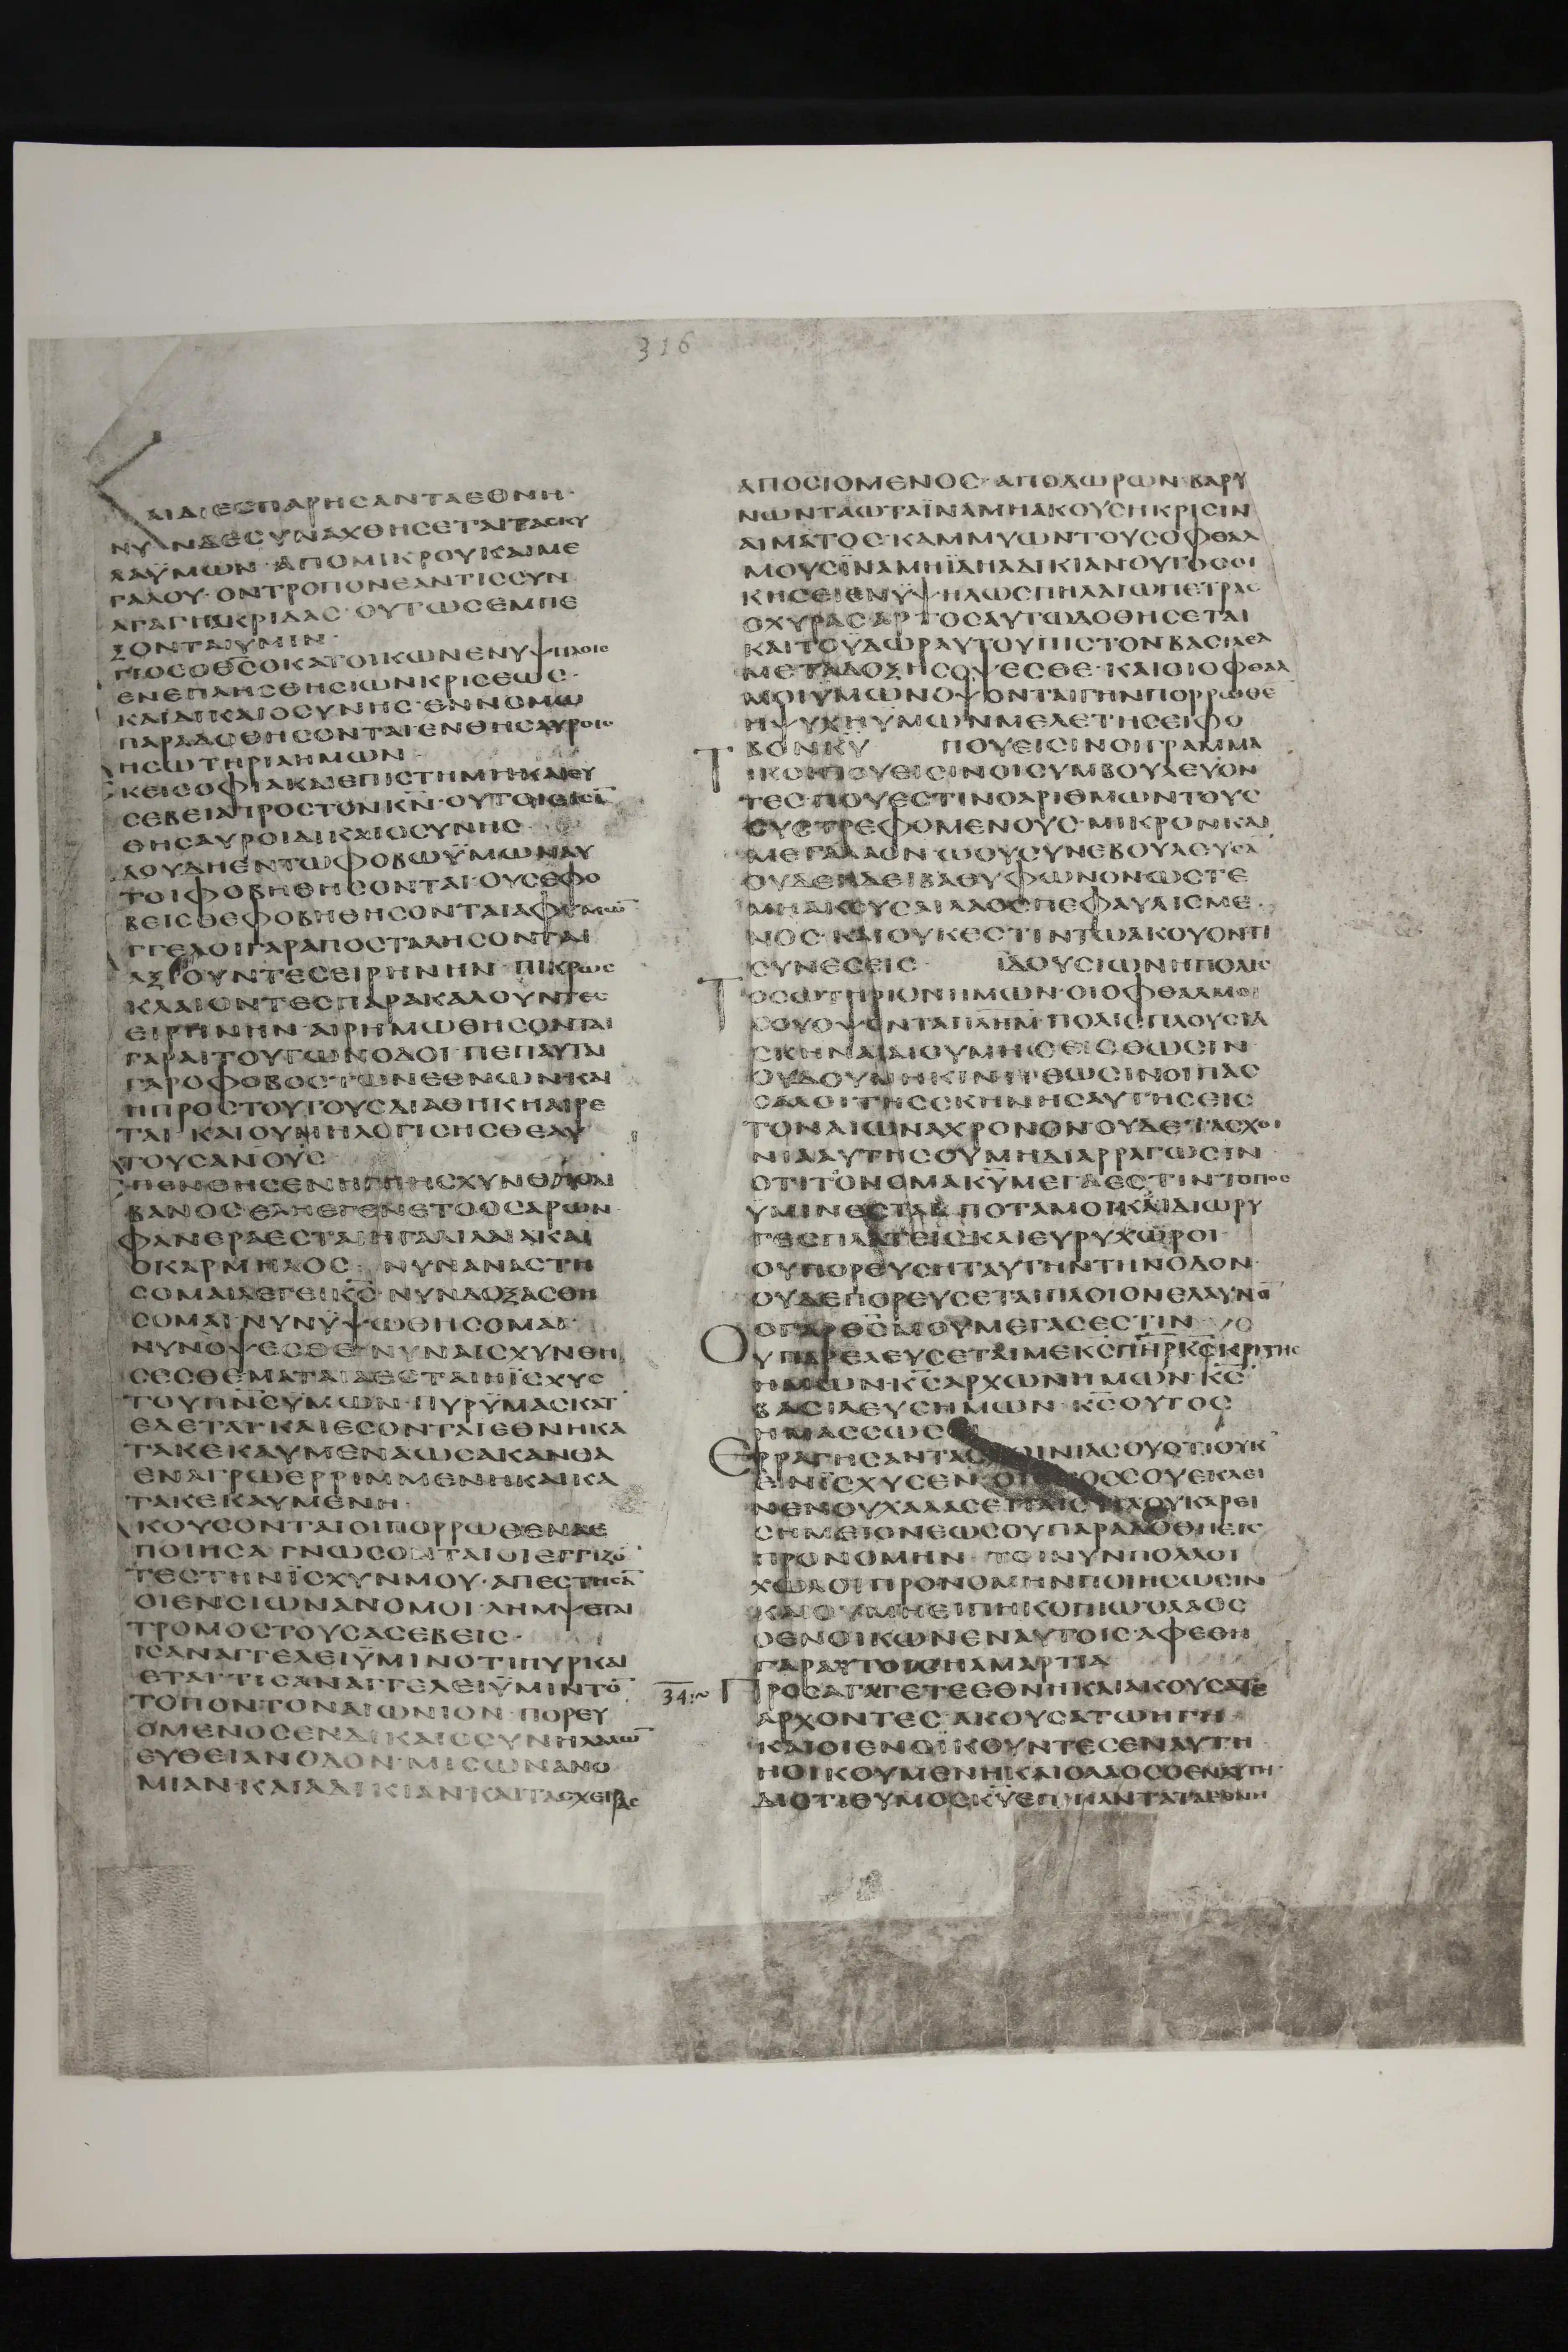 316
ΑΙΔΙΕϹΠΑΡΗϹΑΝΤΑΕΘΝΗ·
ΝΥΝΔΕϹΥΝΑΧΘΗϹΕΤΑΙΤΑϹΚΥ
ΛΑΫΜΩΝ·ΑΠΟΜΙΚΡΟΥΚΑΙΜΕ
ΓΑΛΟΥ·ΟΝΤΡΟΠΟΝΕΑΝΤΙϹϹΥΝ
ΑΓΑΓΗΑΚΡΙΔΑϹ·ΟΥΤΩϹΕΜΠΕ
ΞΟΝΤΑΙΫΜΙΝ·
ΓΙΟϹΟΘϹΟΚΑΤΟΙΚΩΝΕΝΥΨΗΛΟΙϹ
ΕΝΕΠΛΗϹΘΗϹΙΩΝΚΡΙϹΕΩϹ·
ΚΑΙΔΙΚΑΙΟϹΥΝΗϹ·ΕΝΝΟΜΩ
ΠΑΡΑΔΟΘΗϹΟΝΤΑΙ·ΕΝΘΗϹΑΥΡΟΙϹ
ΗϹΩΤΗΡΙΑΗΜΩΝ·
ΚΕΙϹΟΦΙΑΚΑΙΕΠΙϹΤΗΜΗΚΑΙΕΥ
ϹΕΒΕΙΑΠΡΟϹΤΟΝΚΝ·ΟΥΤΟΙΕΙϹΙ
ΘΗϹΑΥΡΟΙΔΙΚΑΙΟϹΥΝΗϹ·
ΔΟΥΔΗΕΝΤΩΦΟΒΩΫΜΩΝΑΥ
ΤΟΙΦΟΒΗΘΗϹΟΝΤΑΙ·ΟΥϹΕΦΟ
ΒΕΙϹΘΕΦΟΒΗΘΗϹΟΝΤΑΙΑΦΥΜΩ
ΓΓΕΛΟΙΓΑΡΑΠΟϹΤΑΛΗϹΟΝΤΑΙ
ΑΞΙΟΥΝΤΕϹΕΙΡΗΝΗΝ·ΠΙΚΡΩϹ
ΚΛΑΙΟΝΤΕϹΠΑΡΑΚΑΛΟΥΝΤΕϹ
ΕΙΡΗΝΗΝ·ΑΙΡΗΜΩΘΗϹΟΝΤΑΙ
ΓΑΡΑΙΤΟΥΤΩΝΟΔΟΙ·ΠΕΠΑΥΤΑΙ
ΓΑΡΟΦΟΒΟϹΤΩΝΕΘΝΩΝΚΑΙ
ΗΠΡΟϹΤΟΥΤΟΥϹΔΙΑΘΗΚΗΑΙΡΕ
ΤΑΙ·ΚΑΙΟΥΜΗΛΟΓΙϹΗϹΘΕΑΥ
ΤΟΥϹΑΝΟΥϹ
ΠΕΝΘΗϹΕΝΗΓΗΗϹΧΥΝΘΗΟΛΙ
ΒΑΝΟϹΕΛΗΕΓΕΝΕΤΟΟϹΑΡΩΝ
ΦΑΝΕΡΑΕϹΤΑΙΗΓΑΛΙΛΑΙΑΚΑΙ
ΟΚΑΡΜΗΛΟϹ· ΝΥΝΑΝΑϹΤΗ
ϹΟΜΑΙΛΕΓΕΙΚϹ·ΝΥΝΔΟΞΑϹΘΗ
ϹΟΜΑΙ·ΝΥΝΫΨΩΘΗϹΟΜΑΙ·
ΝΥΝΟΨΕϹΘΕ·ΝΥΝΑΙϹΧΥΝΘΗ
ϹΕϹΘΕΜΑΤΑΙΑΕϹΤΑΙΗΙϹΧΥϹ
ΤΟΥΠΝϹΫΜΩΝ·ΠΥΡΫΜΑϹΚΑΤ
ΕΔΕΤΑΙ·ΚΑΙΕϹΟΝΤΑΙΕΘΝΗΚΑ
ΤΑΚΕΚΑΥΜΕΝΑΩϹΑΚΑΝΘΑ
ΕΝΑΓΡΩΕΡΡΙΜΜΕΝΗΚΑΙΚΑ
ΤΑΚΕΚΑΥΜΕΝΗ·
ΚΟΥϹΟΝΤΑΙΟΙΠΟΡΡΩΘΕΝΑΕ
ΠΟΙΗϹΑ·ΓΝΩϹΟΝΤΑΙΟΙΕΓΓΙΖΟ
ΤΕϹΤΗΝΪϹΧΥΝΜΟΥ·ΑΠΕϹΤΗϹΑ
ΟΙΕΝϹΙΩΝΑΝΟΜΟΙ·ΛΗΜΨΕΤΑΙ
ΤΡΟΜΟϹΤΟΥϹΑϹΕΒΕΙϹ·
ΙϹΑΝΑΓΓΕΛΕΙΫΜΙΝΟΤΙΠΥΡΚΑΙ
ΕΤΑΙ·ΤΙϹΑΝΑΓΓΕΛΕΙΫΜΙΝΤΟ
ΤΟΠΟΝΤΟΝΑΙΩΝΙΟΝ·ΠΟΡΕΥ
ΟΜΕΝΟϹΕΝΔΙΚΑΙΟϹΥΝΗΛΑΛΩ
ΕΥΘΕΙΑΝΟΔΟΝ·ΜΙϹΩΝΑΝΟ
ΜΙΑΝ·ΚΑΙΑΔΙΚΙΑΝ·ΚΑΙΤΑϹΧΕΙΡΑϹ
ΑΠΟϹΙΟΜΕΝΟϹ·ΑΠΟΔΩΡΩΝ·ΒΑΡΥ
ΝΩΝΤΑΩΤΑΪΝΑΜΗΑΚΟΥϹΗΚΡΙϹΙΝ
ΑΙΜΑΤΟϹ·ΚΑΜΜΥΩΝΤΟΥϹΟΦΘΑΛ
ΜΟΥϹΪΝΑΜΗΪΔΗΑΔΙΚΙΑΝΟΥΤΟϹΟΙ
ΚΗϹΕΙΕΝΥΨΗΛΩϹΠΗΛΑΙΩΠΕΤΡΑϹ
ΟΧΥΡΑϹΑΡΤΟϹΑΥΤΩΔΟΘΗϹΕΤΑΙ
ΚΑΙΤΟΫΔΩΡΑΥΤΟΥΠΙϹΤΟΝΒΑϹΙΛΕΑ
ΜΕΤΑΔΟΞΗϹΟΨΕϹΘΕ·ΚΑΙΟΙΟΦΘΑΛ
ΜΟΙΥΜΩΝΟΨΟΝΤΑΙΓΗΝΠΟΡΡΩΘΕ
ΗΨΥΧΗΥΜΩΝΜΕΛΕΤΗϹΕΙΦΟ
ΒΟΝΚΥ ΠΟΥΕΙϹΙΝΟΙΓΡΑΜΜΑ
ΤΙΚΟΙΠΟΥΕΙϹΙΝΟΙϹΥΜΒΟΥΛΕΥΟΝ
ΤΕϹ·ΠΟΥΕϹΤΙΝΟΑΡΙΘΜΩΝΤΟΥϹ
ϹΥϹΤΡΕΦΟΜΕΝΟΥϹ·ΜΙΚΡΟΝΚΑΙ
ΜΕΓΑΛΑΟΝ·ΩΟΥϹΥΝΕΒΟΥΛΕΥϹΑ
ΟΥΔΕΗΔΕΙΒΑΘΥΦΩΝΟΝ·ΩϹΤΕ
ΜΗΑΚΟΥϹΑΙΛΑΟϹΠΕΦΑΥΛΙϹΜΕ
ΝΟϹ·ΚΑΙΟΥΚΕϹΤΙΝΤΩΑΚΟΥΟΝΤΙ
ϹΥΝΕϹΕΙϹ· ΪΔΟΥϹΙΩΝΗΠΟΛΙϹ
ΤΟϹΩΤΗΡΙΟΝΗΜΩΝ·ΟΙΟΦΘΑΛΜΟΙ
ϹΟΥΟΨΟΝΤΑΙΙΛΗΜ·ΠΟΛΙϹΠΛΟΥϹΙΑ
ϹΚΗΝΑΙΑΙΟΥΜΗϹΕΙϹΘΩϹΙΝ
ΟΥΔΟΥΜΗΚΙΝΗΘΩϹΙΝΟΙΠΑϹ
ϹΑΛΟΙΤΗϹϹΚΗΝΗϹΑΥΤΗϹΕΙϹ
ΤΟΝΑΙΩΝΑΧΡΟΝΟΝ·ΟΥΔΕΤΑϹΧΟΙ
ΝΙΑΑΥΤΗϹΟΥΜΗΔΙΑΡΡΑΓΩϹΙΝ
ΟΤΙΤΟΝΟΜΑΚΥΜΕΓΑΕϹΤΙΝΤΟΠΟϹ
ΥΜΙΝΕϹΤΑΙ·ΠΟΤΑΜΟΙΚΑΙΔΙΩΡΥ
ΓΕϹΠΛΑΤΕΙϹΚΑΙΕΥΡΥΧΩΡΟΙ·
ΟΥΠΟΡΕΥϹΗΤΑΥΤΗΝΤΗΝΟΔΟΝ·
ΟΥΔΕΠΟΡΕΥϹΕΤΑΙΠΛΟΙΟΝΕΛΑΥΝΟ
ΟΓΑΡΘϹΜΟΥΜΕΓΑϹΕϹΤΙΝ
ΟΥΠΑΡΕΛΕΥϹΕΤΑΙΜΕΚϹΠΗΡΚϹΚΡΙΤΗϹ
ΗΜΩΝ·ΚϹΑΡΧΩΝΗΜΩΝ·ΚϹ
ΒΑϹΙΛΕΥϹΗΜΩΝ·ΚϹΟΥΤΟϹ
ΗΜΑϹϹΩϹ
ΕΡΡΑΓΗϹΑΝΤΑϹΧΟΙΝΙΑϹΟΥΟΤΙΟΥΚ
ΕΝΪϹΧΥϹΕΝ·ΟΙϹΤΟϹϹΟΥΕΚΛΕΙ
ΝΕΝΟΥΧΑΛΑϹΕΙΤΑΙϹΤΙΑΟΥΚΑΡΕΙ
ϹΗΜΕΙΟΝΕΩϹΟΥΠΑΡΑΔΟΘΗΕΙϹ
ΠΡΟΝΟΜΗΝ·ΤΟΙΝΥΝΠΟΛΛΟΙ
ΧΩΛΟΙΠΡΟΝΟΜΗΝΠΟΙΗϹΩϹΙΝ
ΚΑΙΟΥΜΗΕΙΠΗΚΟΠΙΩΟΛΑΟϹ
ΟΕΝΟΙΚΩΝΕΝΑΥΤΟΙϹ·ΑΦΕΘΗ
ΓΑΡΑΥΤΟΙϹΗΑΜΑΡΤΙΑ
34:~ ΠΡΟϹΑΓΑΓΕΤΕΕΘΝΗΚΑΙΑΚΟΥϹΑΤΕ
ΑΡΧΟΝΤΕϹ·ΑΚΟΥϹΑΤΩΗΓΗ·
ΚΑΙΟΙΕΝΟΙΚΟΥΝΤΕϹΕΝΑΥΤΗ
ΗΟΙΚΟΥΜΕΝΗ·ΚΑΙΟΛΑΟϹΟΕΝΑΥΤΗ·
ΔΙΟΤΙΘΥΜΟϹΚΥΕΠΙΠΑΝΤΑΤΑΕΘΝΗ